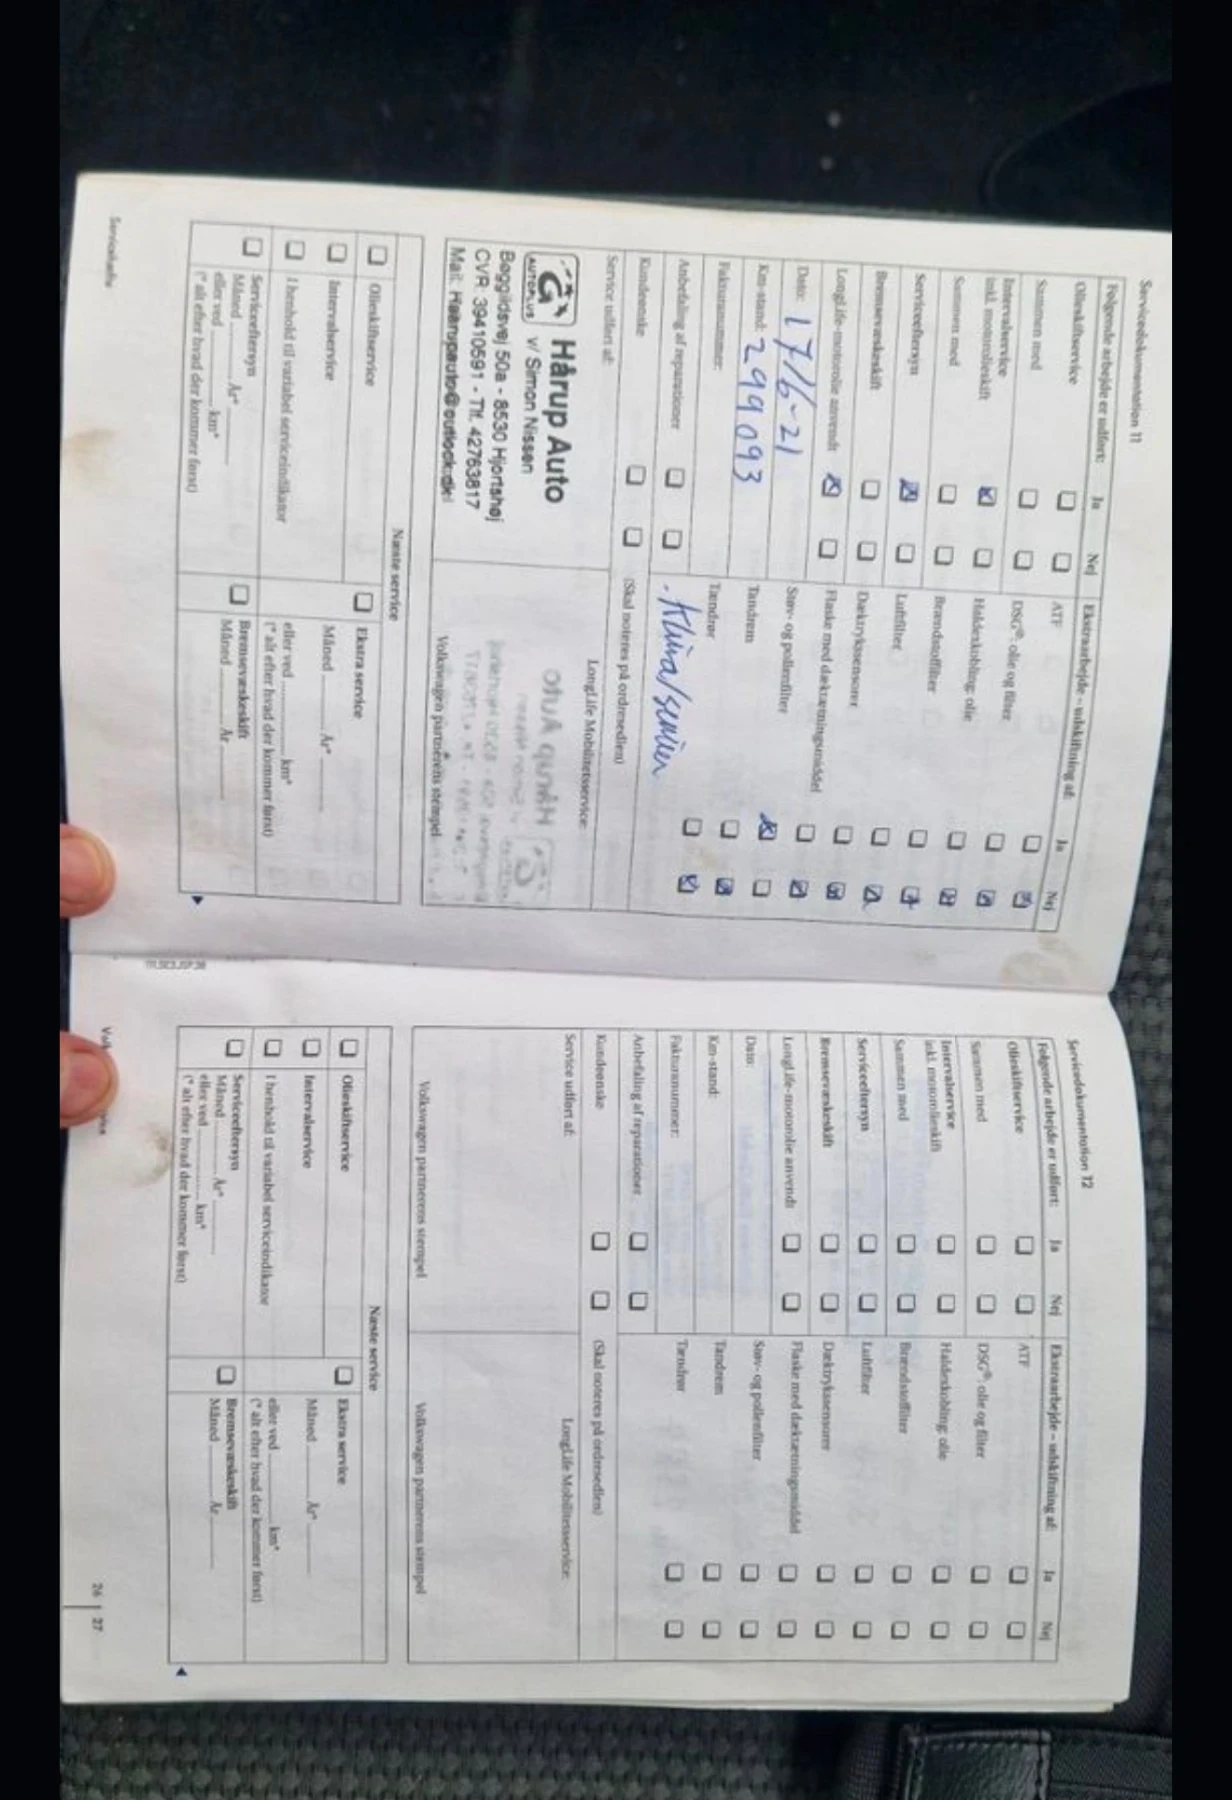 Servicedokumentation 11
Følgende arbejde er udført: Ja Nej
Olieskiftservice
Sammen med
Intervalservice
inkl. motorolieskift
Sammen med
Serviceeftersyn
Bremsevæskeskift
LongLife-motorolie anvendt
Dato: 17/6-21
Km-stand: 299093
Fakturanummer:
Anbefaling af reparationer
Kundeønske
Ekstraarbejde – udskiftning af: Ja Nej
ATF
DSG®: olie og filter
Haldexkobling: olie
Brændstoffilter
Luftfilter
Dæktrykssensorer
Flaske med dæktætningsmiddel
Støv- og pollenfilter
Tandrem
Tændrør
(Skal noteres på ordresedlen)
Service udført af:
LongLife Mobilitetsservice:
AUTOPLUS
Hårup Auto
v/ Simon Nissen
Bøggildsvej 50a - 8530 Hjortshøj
CVR: 39410591 - Tlf. 42763817
Mail: Haarupauto@outlook.dk
Volkswagen partnerens stempel
Næste service
Olieskiftservice
Intervalservice
I henhold til variabel serviceindikator
Serviceeftersyn
Måned År*
eller ved km*
(* alt efter hvad der kommer først)
Ekstra service
Måned År*
eller ved km*
(* alt efter hvad der kommer først)
Bremsevæskeskift
Måned År
Servicedokumentation 12
Følgende arbejde er udført: Ja Nej
Olieskiftservice
Sammen med
Intervalservice
inkl. motorolieskift
Sammen med
Serviceeftersyn
Bremsevæskeskift
LongLife-motorolie anvendt
Dato:
Km-stand:
Fakturanummer:
Anbefaling af reparationer
Kundeønske
Ekstraarbejde – udskiftning af: Ja Nej
ATF
DSG®: olie og filter
Haldexkobling: olie
Brændstoffilter
Luftfilter
Dæktrykssensorer
Flaske med dæktætningsmiddel
Støv- og pollenfilter
Tandrem
Tændrør
(Skal noteres på ordresedlen)
Service udført af:
LongLife Mobilitetsservice:
Volkswagen partnerens stempel
Volkswagen partnerens stempel
Næste service
Olieskiftservice
Intervalservice
I henhold til variabel serviceindikator
Serviceeftersyn
Måned År*
eller ved km*
(* alt efter hvad der kommer først)
Ekstra service
Måned År*
eller ved km*
(* alt efter hvad der kommer først)
Bremsevæskeskift
Måned År
26 27